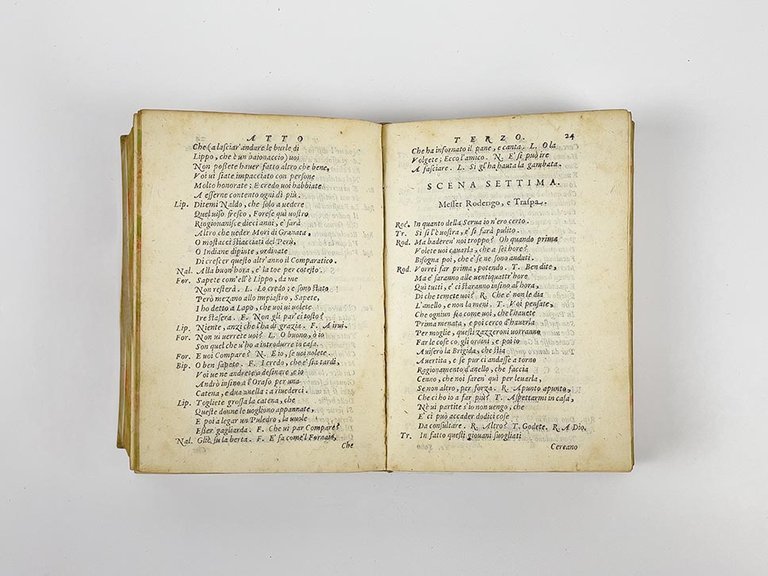 ATTO
Che (a lasciar' andare le burle di
Lippo, che è un baionaccio) uoi
Non poßete hauer fatto altro che bene,
Voi ui siate impacciato con persone
Molto honorate; E credo uoi habbiate
A esserne contento ogni dì più.
Lip. Ditemi Naldo, che solo a uedere
Quel uiso fresco, Forese qui uostro
Ringiouanisce dieci anni, e' farà
Altro che ueder Mori di Granata,
O mostacci stiacciati del Perù,
O Indiane dipinte, ordinate
Di crescer questo altr'anno il Comparatico.
Nal. Alla buon' hora, e' la toe per cotesto.
For. Sapete com'ell'è Lippo, da me
Non resterà. L. Lo credo; e sono stato
Però mezano allo impiastro, Sapete,
I ho detto a Lapo, che uoi ui uolete
Ire stasera. F. Non gli par'ei tosto?
Lip. Niente, anzi che l'ha di grazia. F. A irui.
For. Non ui uerrete uoi? L. O buono, ò io
Son quel che u'ho a introdurre in casa.
For. E uoi Compare? N. E io, se uoi uolete.
Lip. O ben sapete. F. I credo, che e' sia tardi,
Voi ue ne andrete a desinare, e io
Andrò insino a l'Orafo per una
Catena, e d'na uuella: a riuederci.
Lip. Togliete grossa la catena, che
Queste donne le uogliono appannate,
E poi a legar un Puledro, la uuole
Esser gagliarda. F. Che ui par Compare?
Nal. Gliè sù la berta. F. E' fa come'l Fornaio,
Che
TERZO. 24
Che ha infornato il pane, e canta. L. O la
Volgete; Ecco l'amico. N. E' si può ire
A fasciare. L. Si gl'ha hauta la gambata.
SCENA SETTIMA.
Messer Roderigo, e Traspa.
Rod. In quanto della Serua io n'ero certo.
Tr. Si sì l'è uostra, e' si farà pulito.
Rod. Ma baderen' noi troppo? Oh quando prima
Volete uoi cauarla, che a sei hore?
Bisogna poi, che e' se ne sono andati.
Rod. Vorrei far prima, potendo. T. Ben dite,
Ma e' faranno alle uentiquattr' hore
Quì tutti, e' ci staranno insino al' hora,
Di che temete uoi? R. Che e' non le dia
L'anello, e non la meni. T. Voi pensate,
Che ogniun sia come uoi, che l'hauete
Prima menata, e poi cerco d'hauerla
Per moglie, questi zazzeroni uorranno
Far le cose co gli ordini, e poi io
Auiserò la Brigida, che stia
Auertita, e se pur ci andasse a torno
Ragionamento d'anello, che faccia
Cenno, che noi saren' quì per leuarla,
Se non altro, per forza. R. Apunto apunto,
Che ci ho io a far più? T. Aspettarmi in casa,
Nè ui partite s'io non uengo, che
E' ci può accader dodici cose
Da consultare. R. Altro? T. Godete. R. A Dio.
Tr. In fatto questi giouani suogliati
Cercano